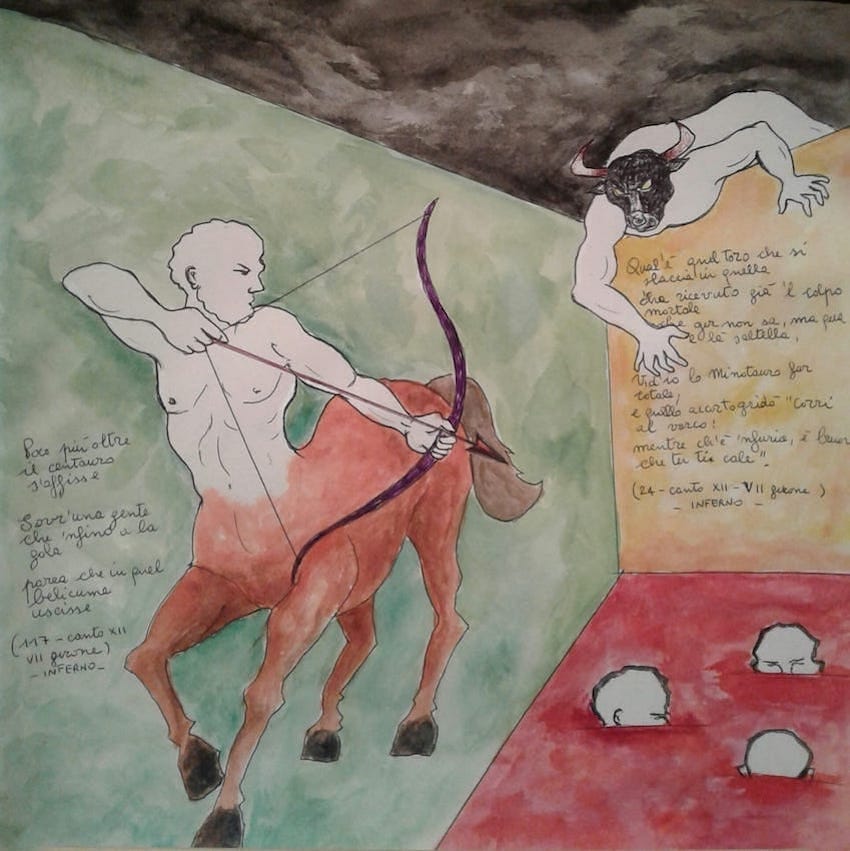 Poco più oltre
il centauro
s'affisse
Sovr'una gente
che 'nfino a la
gola
parea che in quel
bulicame
uscisse
(117 - canto XII
VII girone)
- INFERNO -
Qual'è quel toro che si
slaccia in quella
c'ha ricevuto già 'l colpo
mortale
che gir non sa, ma qua
e là saltella,
Vid'io lo Minotauro far
cotale;
e quello accorto gridò "Corri
al varco!
mentre ch'è 'nfuria, è buon
che tu ti cale".
(24 - canto XII - VII girone)
- INFERNO -